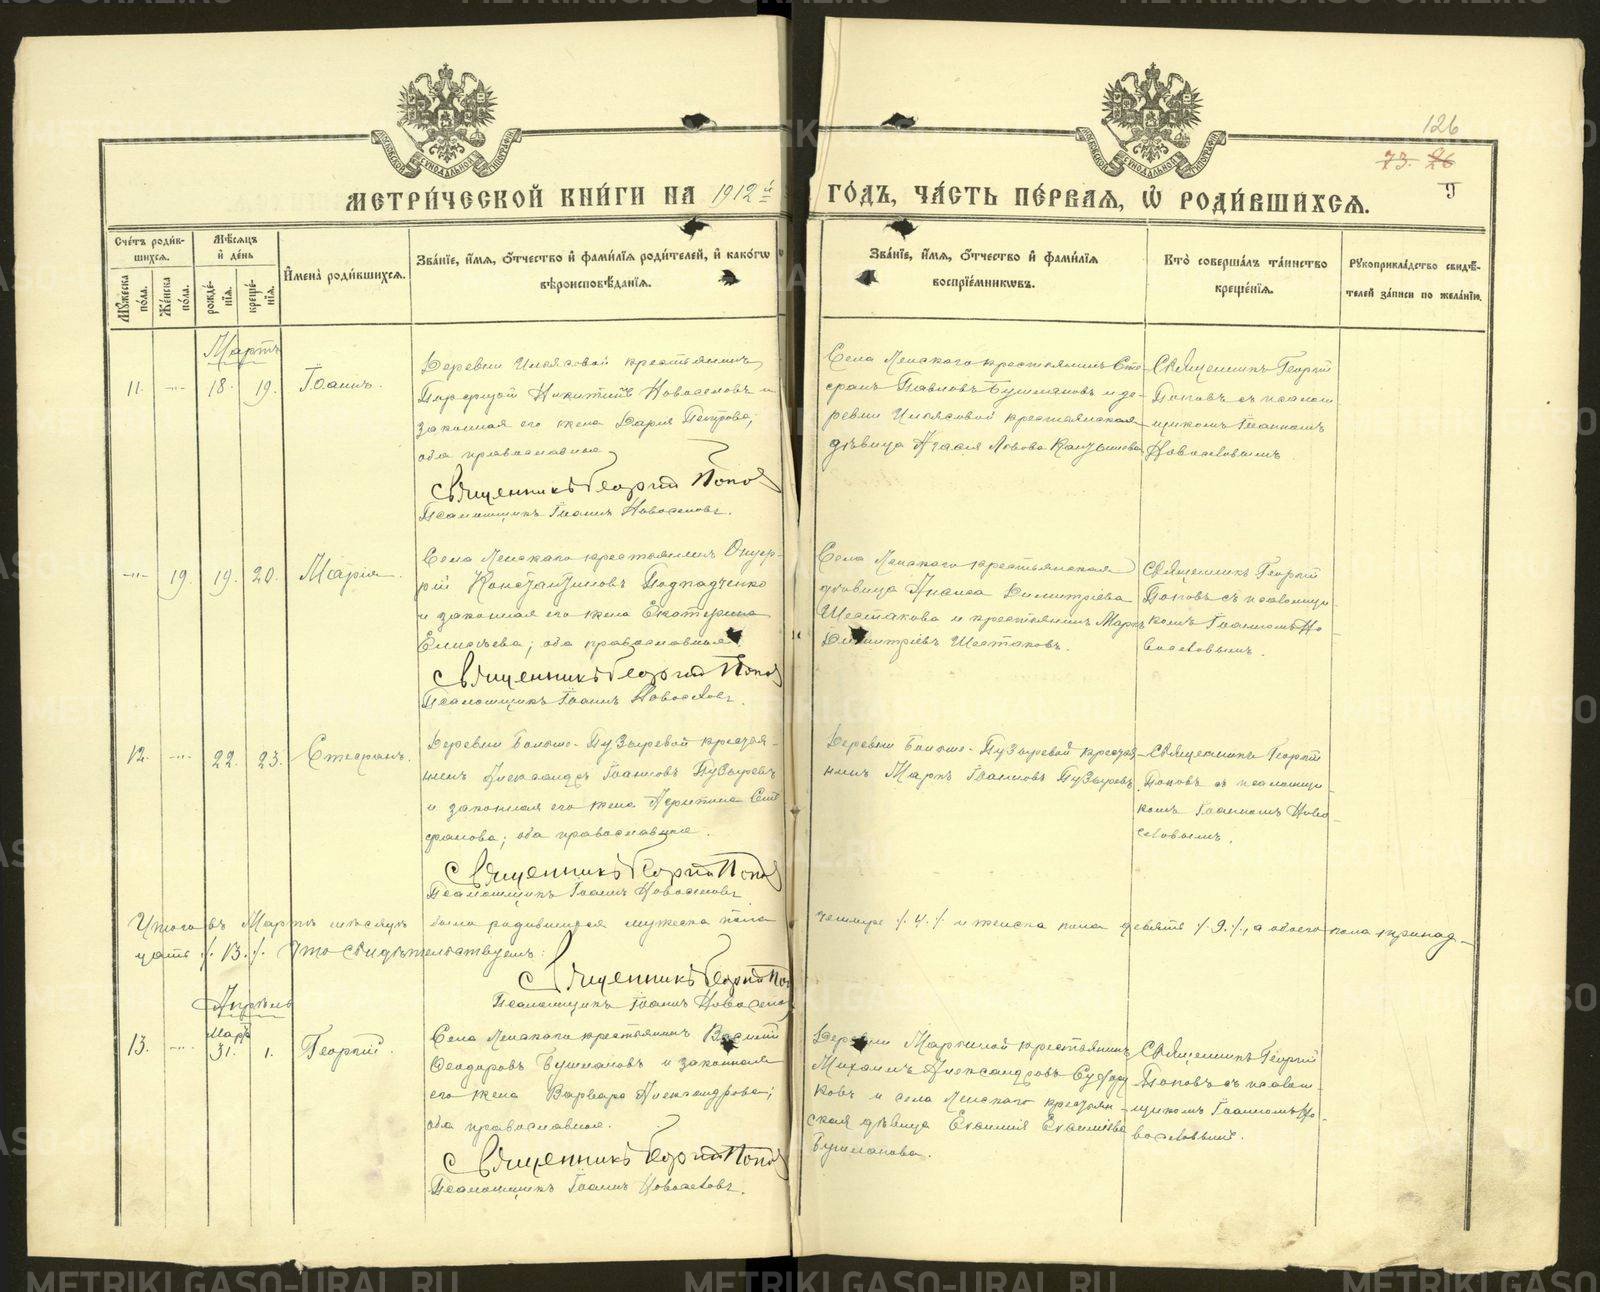 126
73. 26
МЕТРИ́ЧЕСКОЙ КНИ́ГИ НА 1912 й ГО́ДЪ, ЧА́СТЬ ПЕ́РВАЯ, Ѡ РОДИ́ВШИХСЯ.
Сче́тъ роди́вшихся.
Му́жеска по́ла.
Же́нска по́ла.
Мѣ́сяцъ и де́нь
рожде́нїя.
креще́нїя.
И҆мена̀ роди́вшихся.
Зва́нїе, и҆́мя, ѻ҆́тчество и҆ фами́лїя роди́телей, и҆ какого
вѣроисповѣ́данїя.
Зва́нїе, и҆́мя, ѻ҆́тчество и҆ фами́лїя
воспрїе́мниковъ.
Кто̀ соверша́лъ та́инство
креще́нїя.
Рукоприкла́дство свидѣ́-
телей за́писи по жела́нїю.
Мартъ
11. -"- 18. 19. Іоаннъ.
Деревни Ильясовой крестьянинъ
Порфирій Никитинъ Новоселовъ и
законная его жена Дарья Петрова;
оба православные
Священникъ Георгій Попов
Псаломщикъ Іоаннъ Новоселовъ.
Села Ленскаго крестьянинъ Сте
фанъ Павловъ Бушмановъ и де-
ревни Ильясовой крестьянская
дѣвица Агафія Львова
Священникъ Георгій
Поповъ съ псалом
щикомъ Іоанномъ
Новоселовымъ
-"- 19. 19. 20. Марія.
Села Ленскаго крестьянинъ Онуф-
рій Константиновъ
и законная его жена Екатерина
Елисѣева; оба православные
Священникъ Георгій Попов
Псаломщикъ Іоаннъ Новоселовъ.
Села Ленскаго крестьянская
дѣвица Анисья Димитріева
Шестакова и крестьянинъ Маркъ
Димитріевъ Шестаковъ.
Священникъ Георгій
Поповъ съ псаломщи-
комъ Іоанномъ Но-
воселовымъ.
12. -"- 22. 23. Стефанъ.
Деревни Больше-Пузыревой крестья-
нинъ Александръ Іоанновъ Пузыревъ
и законная его жена Сте
фанова; оба православные.
Священникъ Георгій Попов
Псаломщикъ Іоаннъ Новоселовъ
Деревни Больше-Пузыревой крестья-
нинъ Маркъ Іоанновъ Пузыревъ.
Священникъ Георгій
Поповъ съ псаломщи-
комъ Іоанномъ Ново-
селовымъ.
Итого въ Мартѣ мѣсяцѣ было родившихся мужеска пола четыре /. 4. /. и женска пола девять /. 9. /., а обоего пола тринад-
цать /. 13. /. Что свидѣтельствуемъ:
Священникъ Георгій Поп
Псаломщикъ Іоаннъ Новоселов
Апрѣль
Мартъ
13. -"- 31. 1. Георгій.
Села Ленскаго крестьянинъ Василій
Феодоровъ Бушмановъ и законная
его жена Варвара Александрова;
оба православные.
Священникъ Георгій Попов
Псаломщикъ Іоаннъ Новоселовъ.
Деревни крестьянинъ
Михаилъ Александровъ
ковъ и села Ленскаго крестьян-
ская дѣвица
Бушманова.
Священникъ Георгій
Поповъ съ псалом-
щикомъ Іоанномъ Но-
воселовымъ.
METRIKI.GASO-URAL.RU